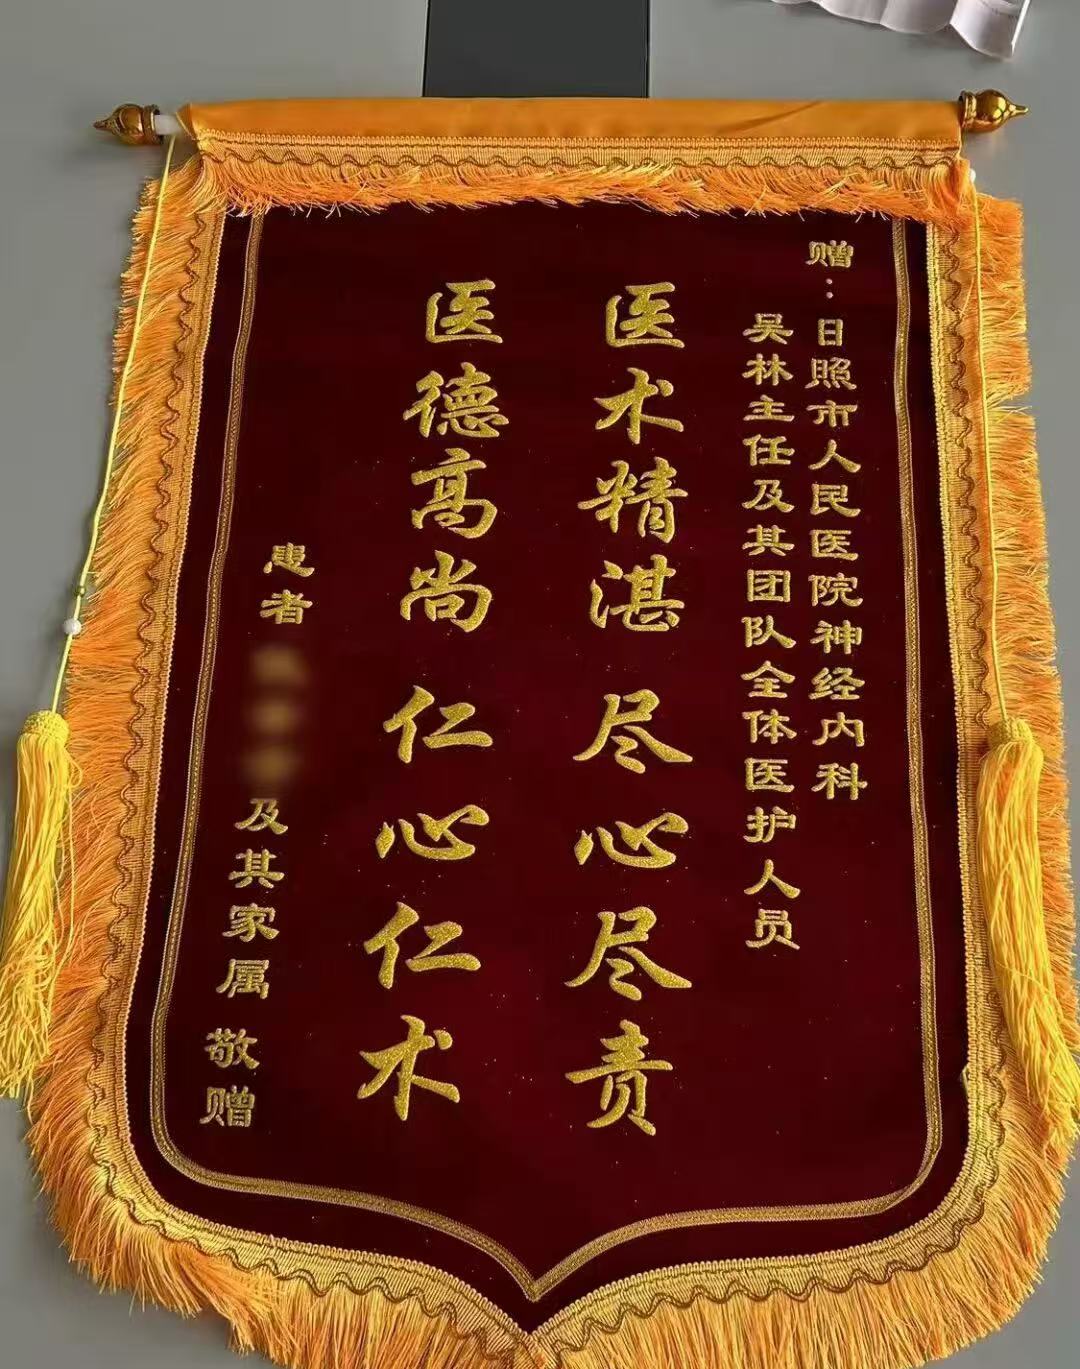 赠：日照市人民医院神经内科
吴林主任及其团队全体医护人员
医术精湛 尽心尽责
医德高尚 仁心仁术
患者 及其家属 敬赠